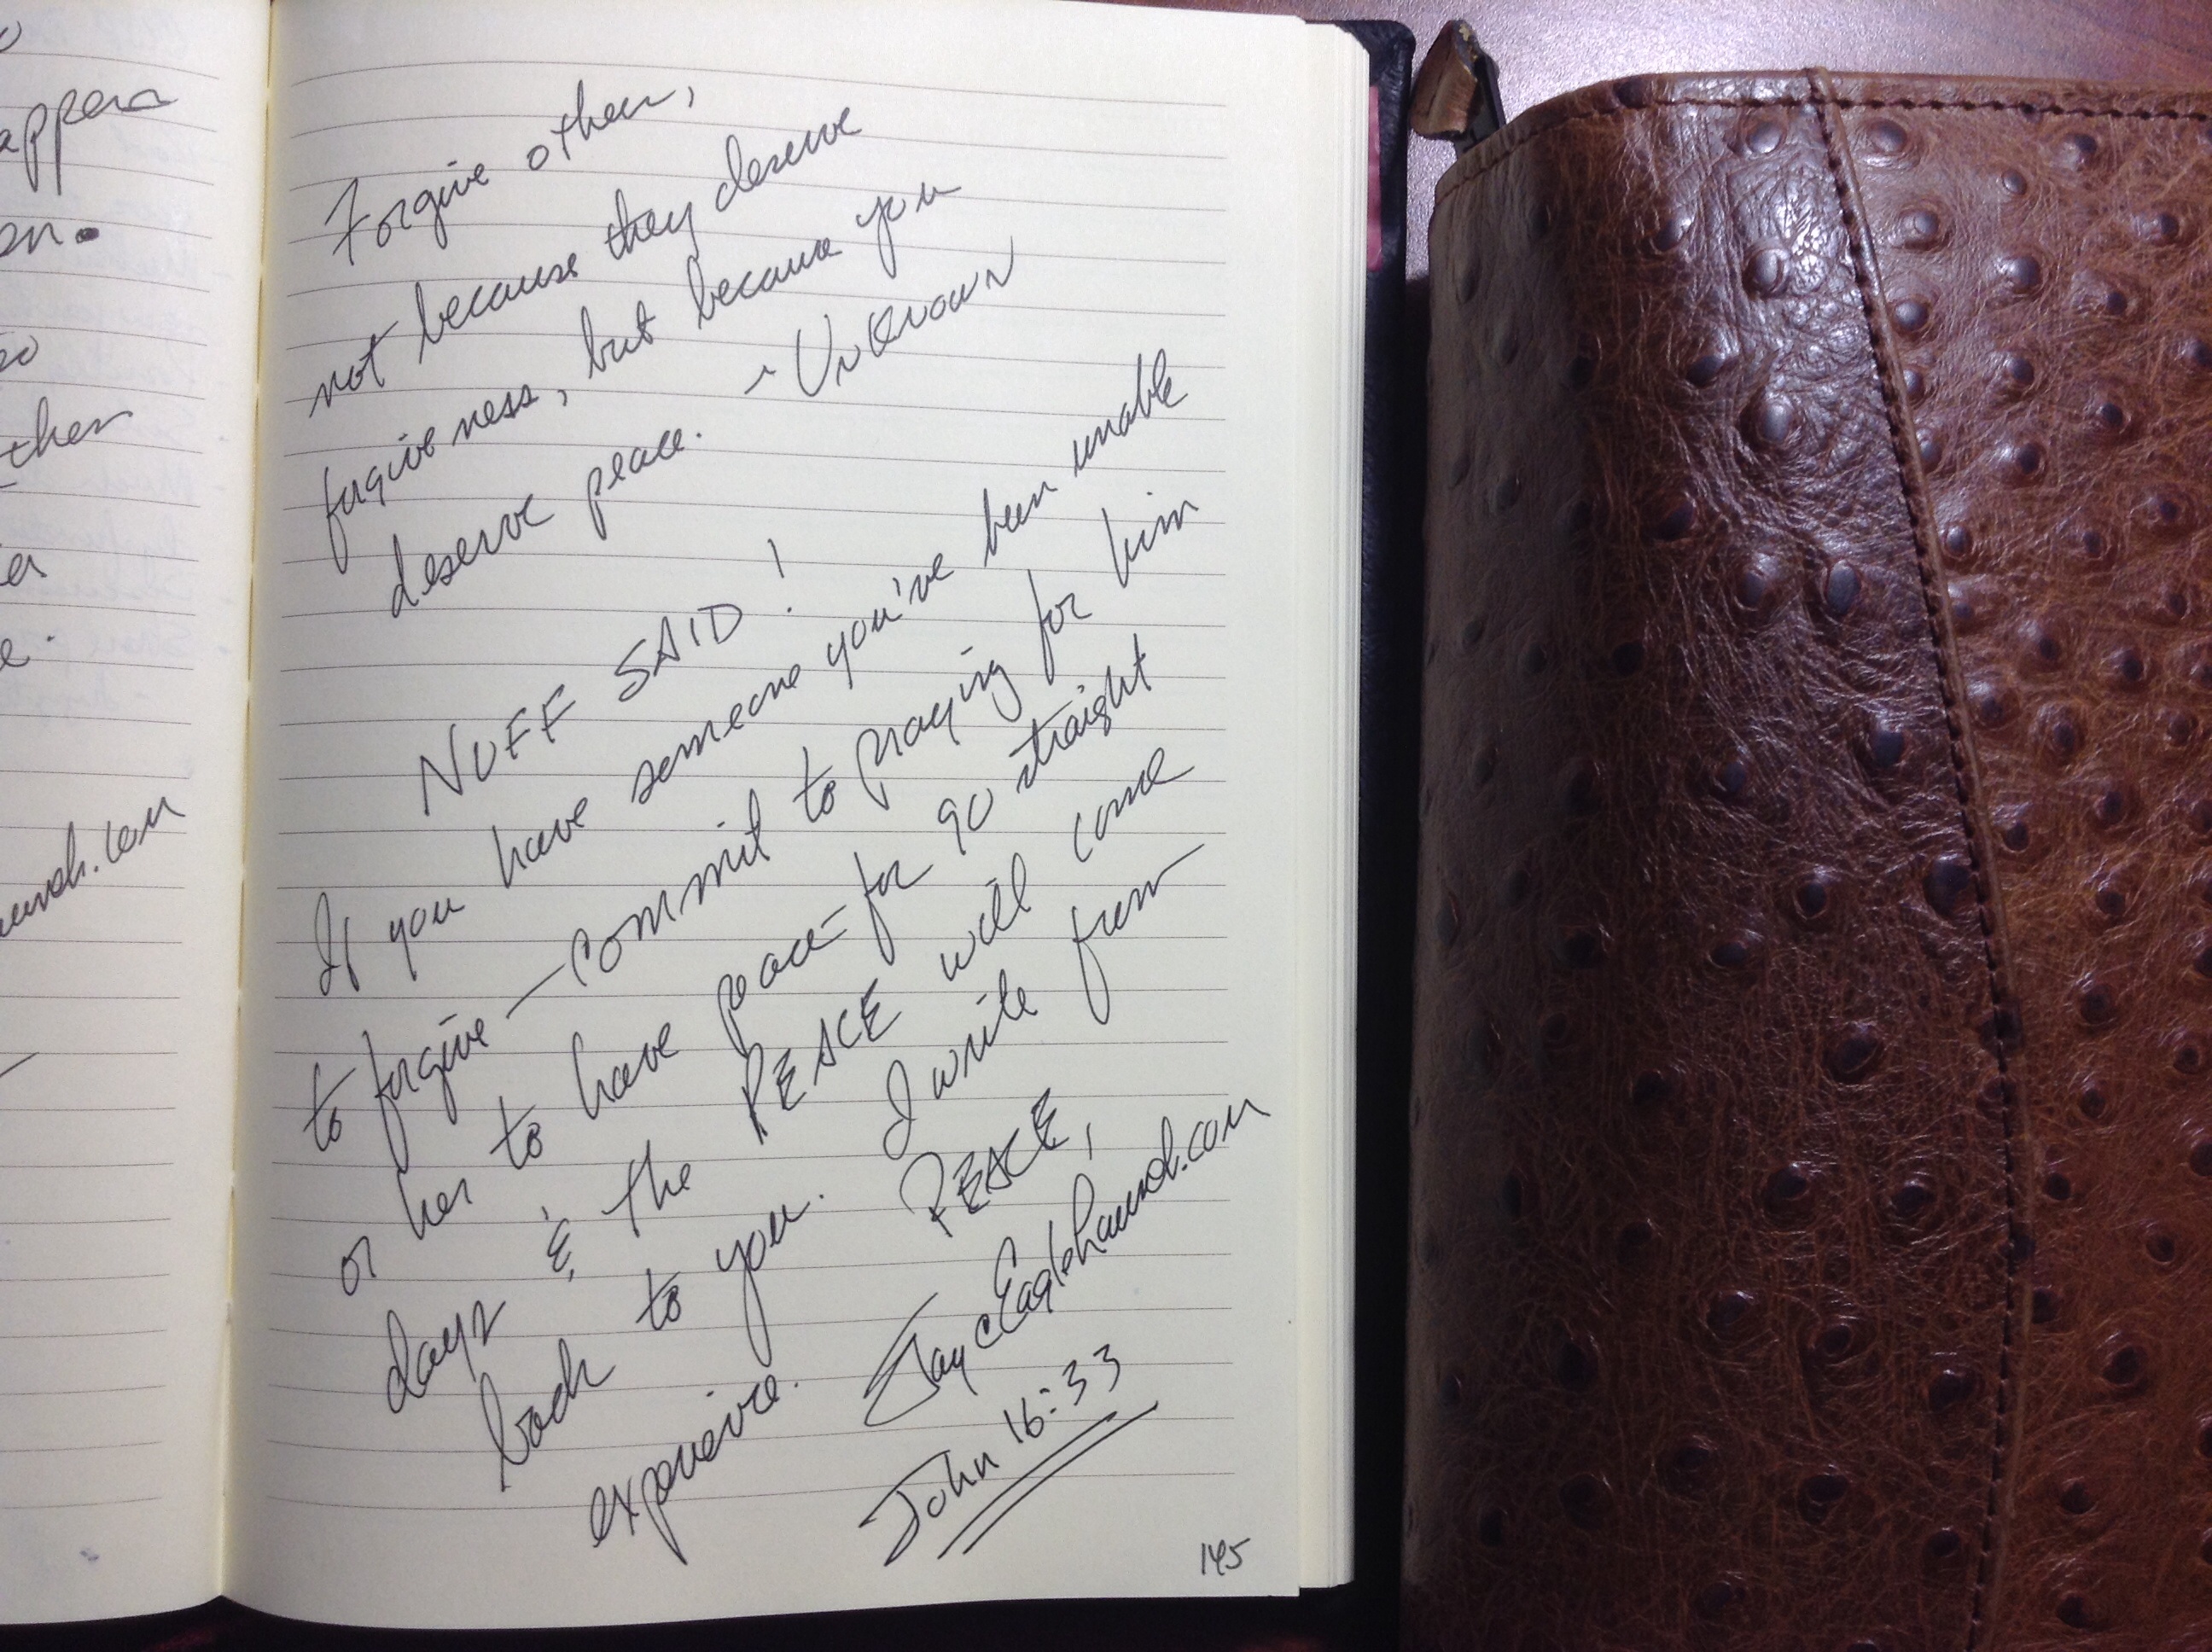 appen
on.
so
then
e.
Forgive others,
not because they deserve
forgiveness, but because you
deserve peace. ~ Unknown
NUFF SAID!
If you have someone you've been unable
to forgive — commit to praying for him
or her to have peace - for 90 straight
days & the PEACE will come
back to you. I write from
experience. PEACE,
JaycEaglehaunch.com
John 16:33
145